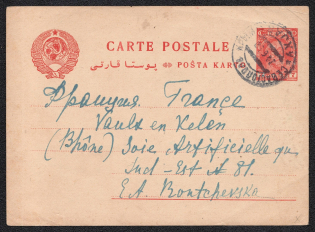 CARTE POSTALE
پوستا قارتی POŠTA KAR
Франция. France
Vaulx en Velin
(Rhône) Soie Artificielle du
Sud-Est A 81.
E.A. Rontchevska